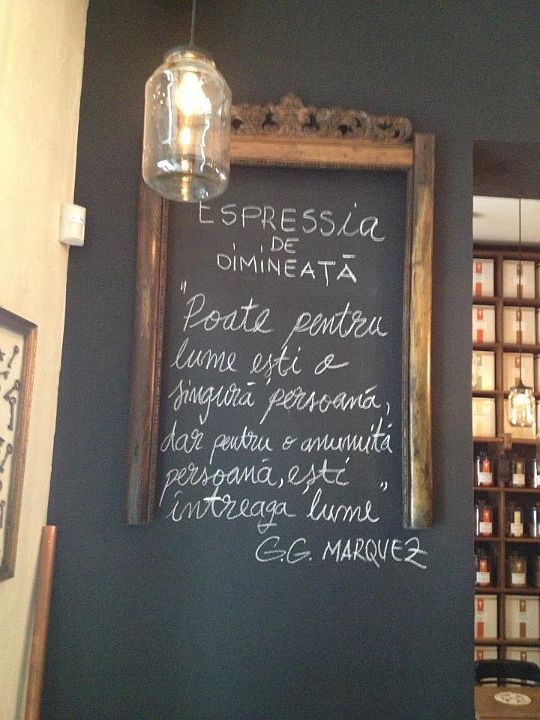 ESPRESSia
DE
DIMINEAȚĂ
"Poate pentru
lume ești o
singură persoană,
dar pentru o anumită
persoană, ești
intreaga lume"
G.G. MARQUEZ